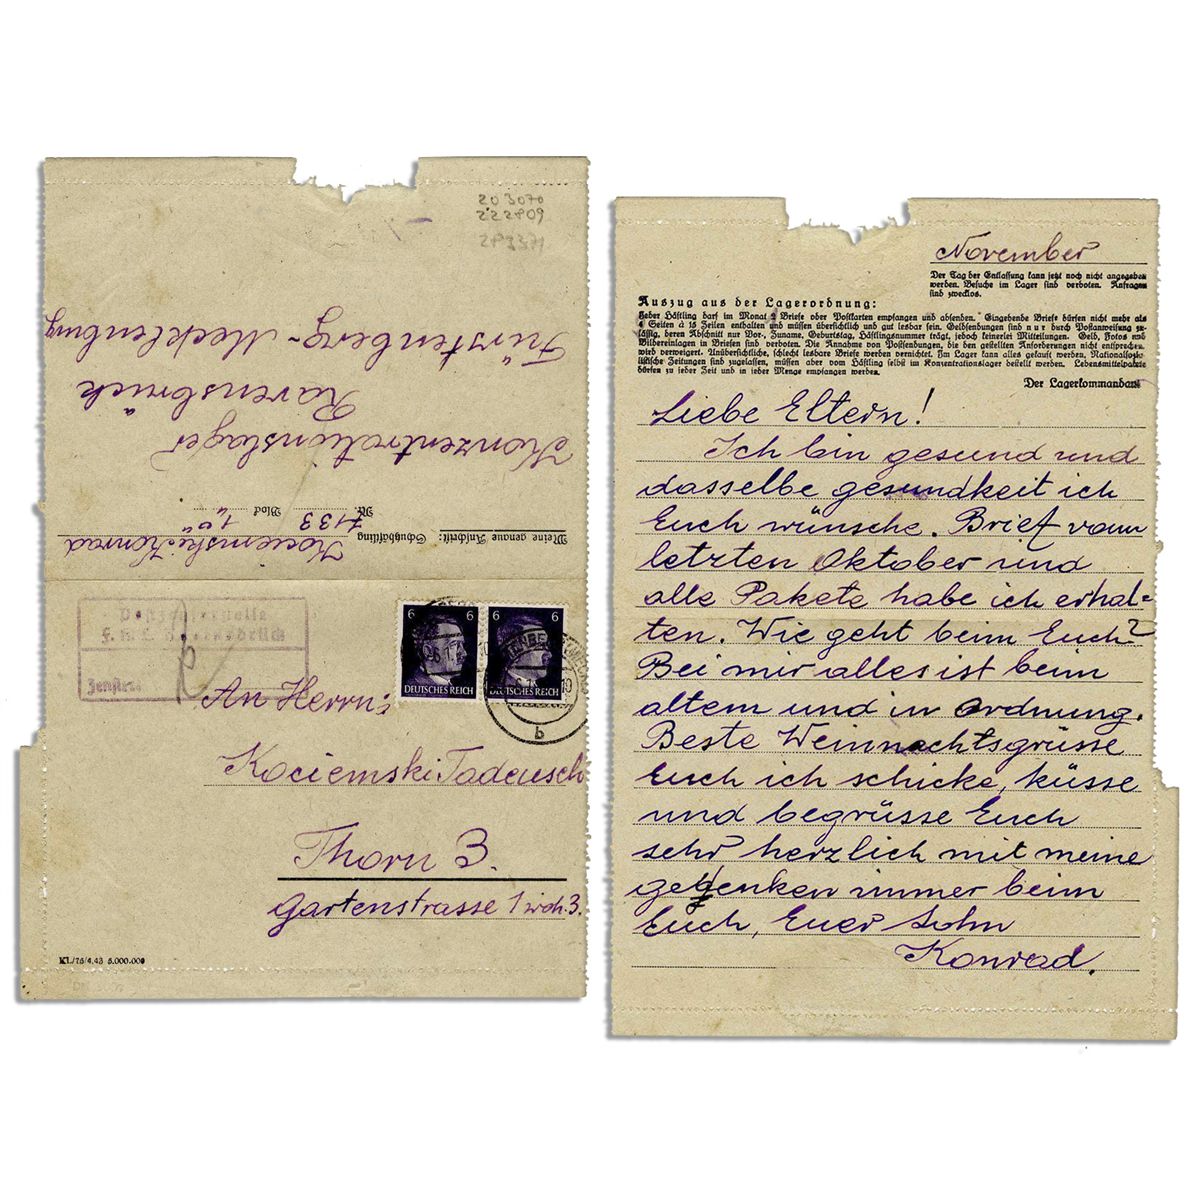 203070
222809
Fürstenberg-Mecklenburg
Ravensbrück
Konzentrationslager
Nr. 7133 Block 1 "a"
Meine genaue Anschrift: Schutzhäftling
Kociemski Konrad
Postzensurstelle
F. K. L. Ravensbrück
6 6
DEUTSCHES REICH DEUTSCHES REICH
b
An Herrn:
Kociemski Tadeusch
Thorn 3.
Gartenstrasse 1 wch. 3.
KL/75/4.43 5.000.000
November
Der Tag der Entlassung kann jetzt noch nicht angegeben
werden. Besuche im Lager sind verboten. Anfragen
sind zwecklos.
Auszug aus der Lagerordnung:
Jeder Häftling darf im Monat 2 Briefe oder Postkarten empfangen und absenden. Eingehende Briefe dürfen nicht mehr als
4 Seiten à 15 Zeilen enthalten und müssen übersichtlich und gut lesbar sein. Geldsendungen sind nur durch Postanweisung zu-
lässig, deren Abschnitt nur Vor-, Zuname, Geburtstag, Häftlingsnummer trägt, jedoch keinerlei Mitteilungen. Geld, Fotos und
Bildereinlagen in Briefen sind verboten. Die Annahme von Postsendungen, die den gestellten Anforderungen nicht entsprechen,
wird verweigert. Unübersichtliche, schlecht lesbare Briefe werden vernichtet. Im Lager kann alles gekauft werden. Nationalsozia-
listische Zeitungen sind zugelassen, müssen aber vom Häftling selbst im Konzentrationslager bestellt werden. Lebensmittelpakete
dürfen zu jeder Zeit und in jeder Menge empfangen werden.
Der Lagerkommandant
Liebe Eltern!
Ich bin gesund und
dasselbe gesundkeit ich
Euch wünsche. Brief vom
letzten Oktober und
alle Pakete habe ich erhal-
ten. Wie geht beim Euch?
Bei mir alles ist beim
altem und in Ordnung.
Beste Weinnachtsgrüsse
Euch ich schicke, küsse
und begrüsse Euch
sehr herzlich mit meine
gedenken immer beim
Euch, Euer Sohn
Konrad.